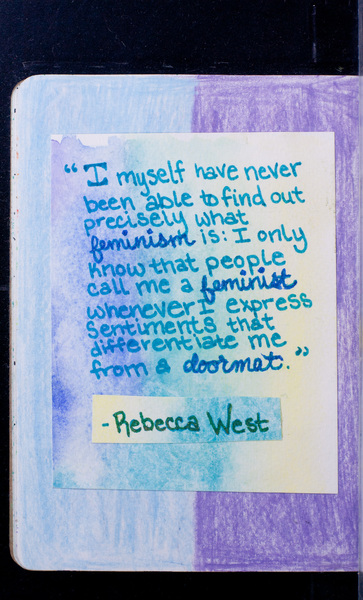 “I myself have never
been able to find out
precisely what
feminism is: I only
know that people
call me a feminist
whenever I express
sentiments that
differentiate me
from a doormat.”
- Rebecca West